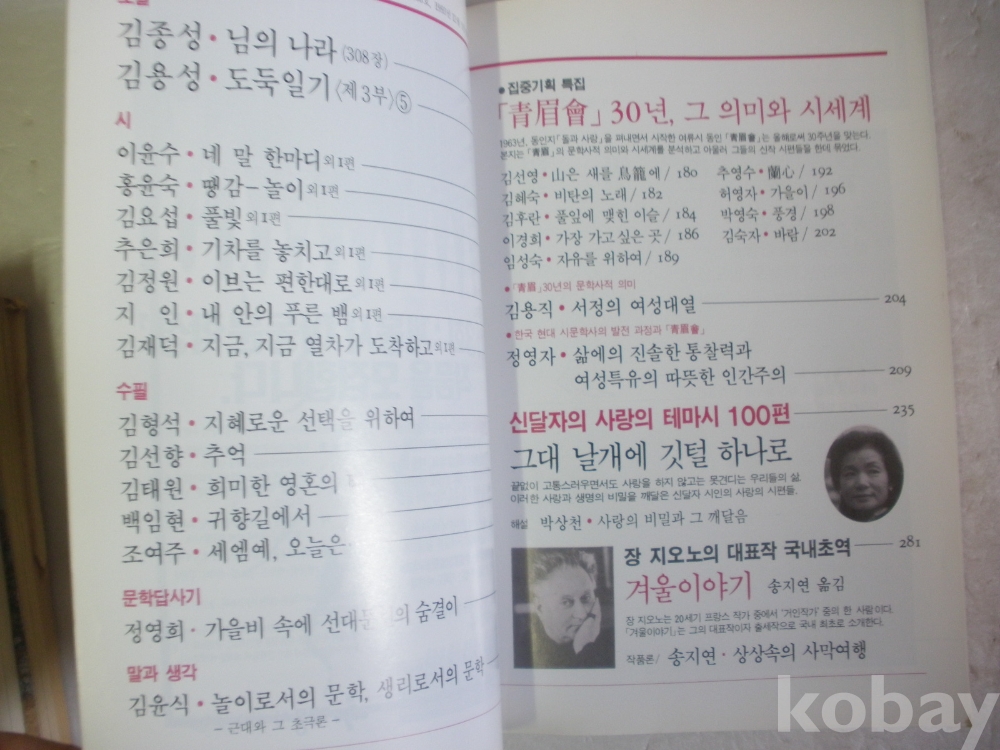 소설
김종성 • 님의 나라 〈308장〉
김용성 • 도둑일기 〈제3부〉⑤
시
이윤수 • 네 말 한마디 외1편
홍윤숙 • 땡감-놀이 외1편
김요섭 • 풀빛 외1편
추은희 • 기차를 놓치고 외1편
김정원 • 이브는 편한대로 외1편
지 인 • 내 안의 푸른 뱀 외1편
김재덕 • 지금, 지금 열차가 도착하고 외1편
수필
김형석 • 지혜로운 선택을 위하여
김선향 • 추억
김태원 • 희미한 영혼의
백임현 • 귀향길에서
조여주 • 세엠예, 오늘은
문학답사기
정영희 • 가을비 속에 선대문인의 숨결이
말과 생각
김윤식 • 놀이로서의 문학, 생리로서의 문학
- 근대와 그 초극론 -
• 집중기획 특집
「靑眉會」 30년, 그 의미와 시세계
1963년, 동인지 「돌과 사랑」을 펴내면서 시작한 여류시 동인 「靑眉會」는 올해로써 30주년을 맞는다.
본지는 「靑眉」의 문학사적 의미와 시세계를 분석하고 아울러 그들의 신작 시편들을 한데 묶었다.
김선영 • 山은 새를 鳥籠에 / 180 추영수 • 蘭心 / 192
김혜숙 • 비탄의 노래 / 182 허영자 • 가을이 / 196
김후란 • 풀잎에 맺힌 이슬 / 184 박영숙 • 풍경 / 198
이경희 • 가장 가고 싶은 곳 / 186 김숙자 • 바람 / 202
임성숙 • 자유를 위하여 / 189
• 「靑眉」 30년의 문학사적 의미
김용직 • 서정의 여성대열 204
• 한국 현대 시문학사의 발전 과정과 「靑眉會」
정영자 • 삶에의 진솔한 통찰력과
여성특유의 따뜻한 인간주의 209
신달자의 사랑의 테마시 100편 235
그대 날개에 깃털 하나로
끝없이 고통스러우면서도 사랑을 하지 않고는 못견디는 우리들의 삶.
이러한 사랑과 생명의 비밀을 깨달은 신달자 시인의 사랑의 시편들.
해설 박상천 • 사랑의 비밀과 그 깨달음
장 지오노의 대표작 국내초역 281
겨울이야기 송지연 옮김
장 지오노는 20세기 프랑스 작가 중에서 '거인작가' 중의 한 사람이다.
「겨울이야기」는 그의 대표작이자 출세작으로 국내 최초로 소개한다.
작품론 / 송지연 • 상상속의 사막여행
kobay